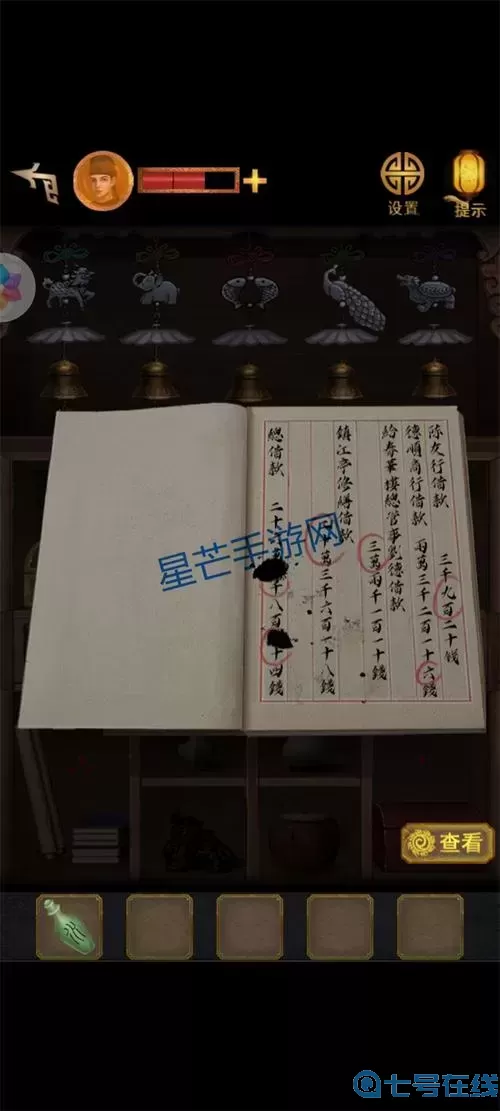 设置
提示
陈友行借款 三千九百二十錢
德順商行借款 兩萬三千二百一十六錢
給春華樓總管事劉德借款 三萬兩千一百一十錢
鎮江亭修繕借款 十萬三千六百一十八錢
總借款 二十 千八百 十四錢
星芒手游网
查看
七号在线